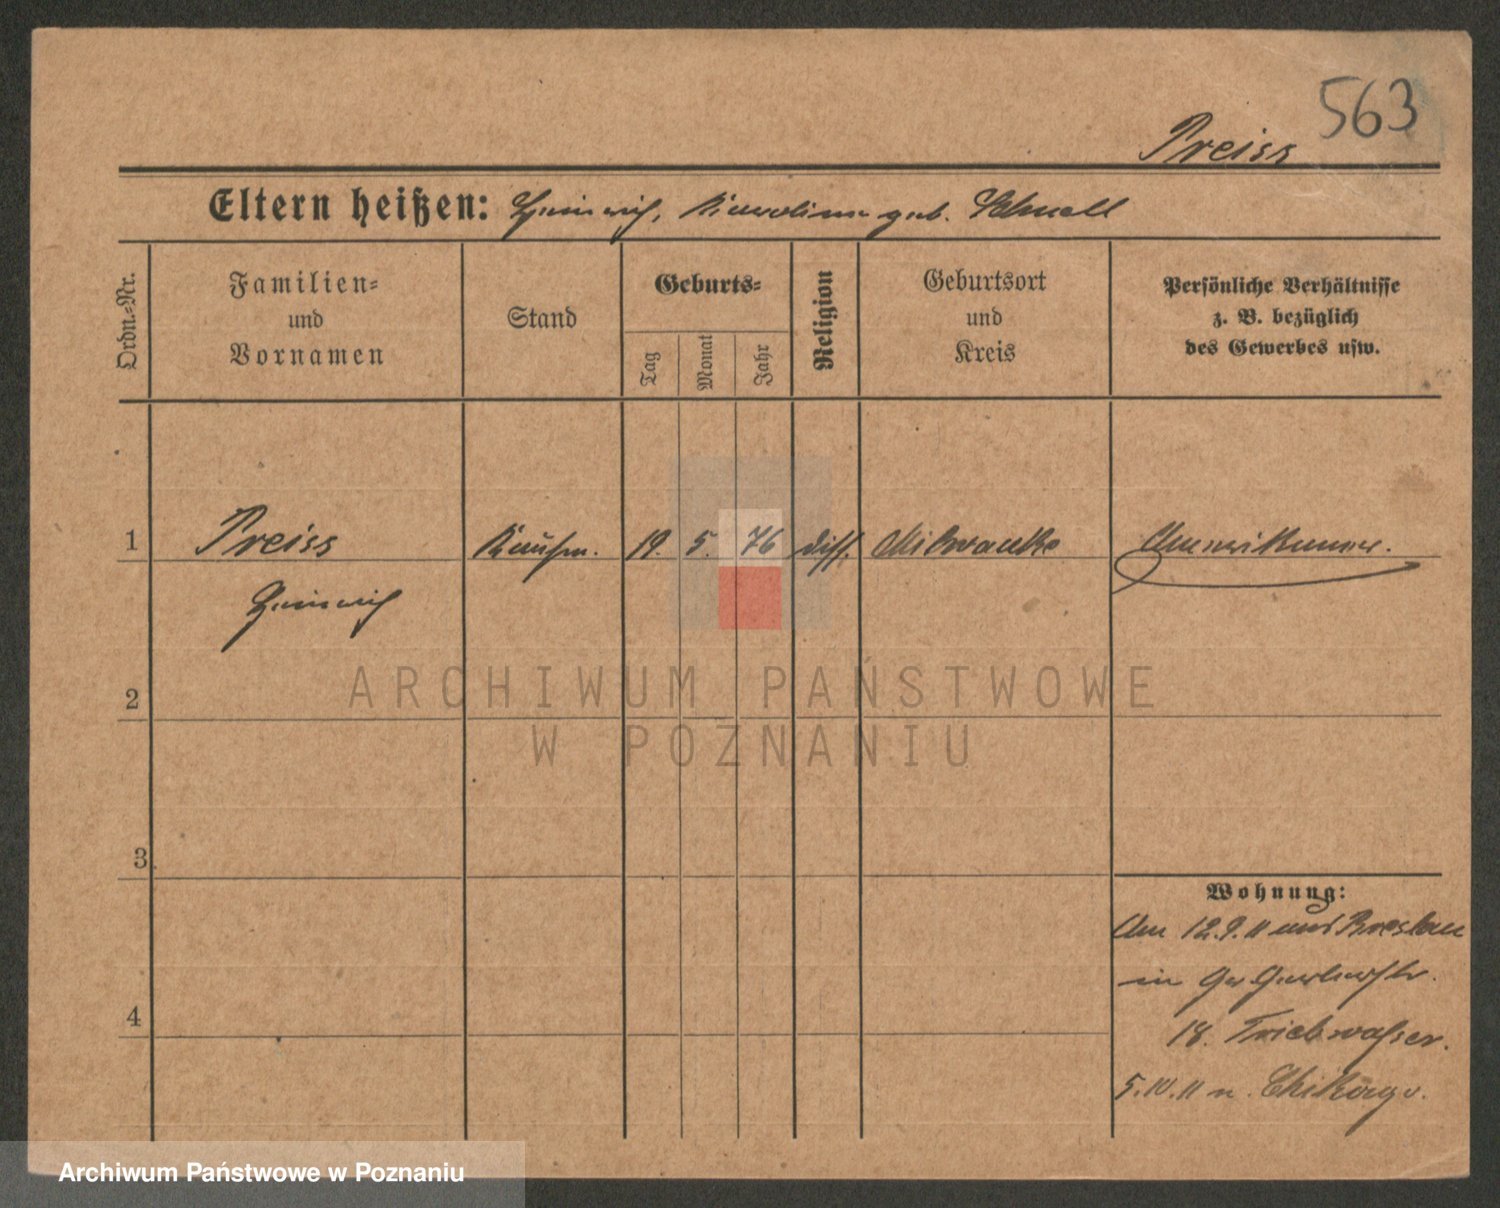 563
Preiss
Eltern heißen: Heinrich, Karoline geb. Schnell
Ordn.-Nr.
Familien-
und
Vornamen
Stand
Geburts-
Tag
Monat
Jahr
Religion
Geburtsort
und
Kreis
Persönliche Verhältnisse
z. B. bezüglich
des Gewerbes usw.
1 Preiss Kaufm. 19. 5. 76 diss. Milwauke Amerikaner.
Heinrich
2
3
4
Wohnung:
Am 12.9.11 aus Breslau
in
18. Triebwasser.
5.10.11 n. Chikago.
ARCHIWUM PAŃSTWOWE
W POZNANIU
Archiwum Państwowe w Poznaniu